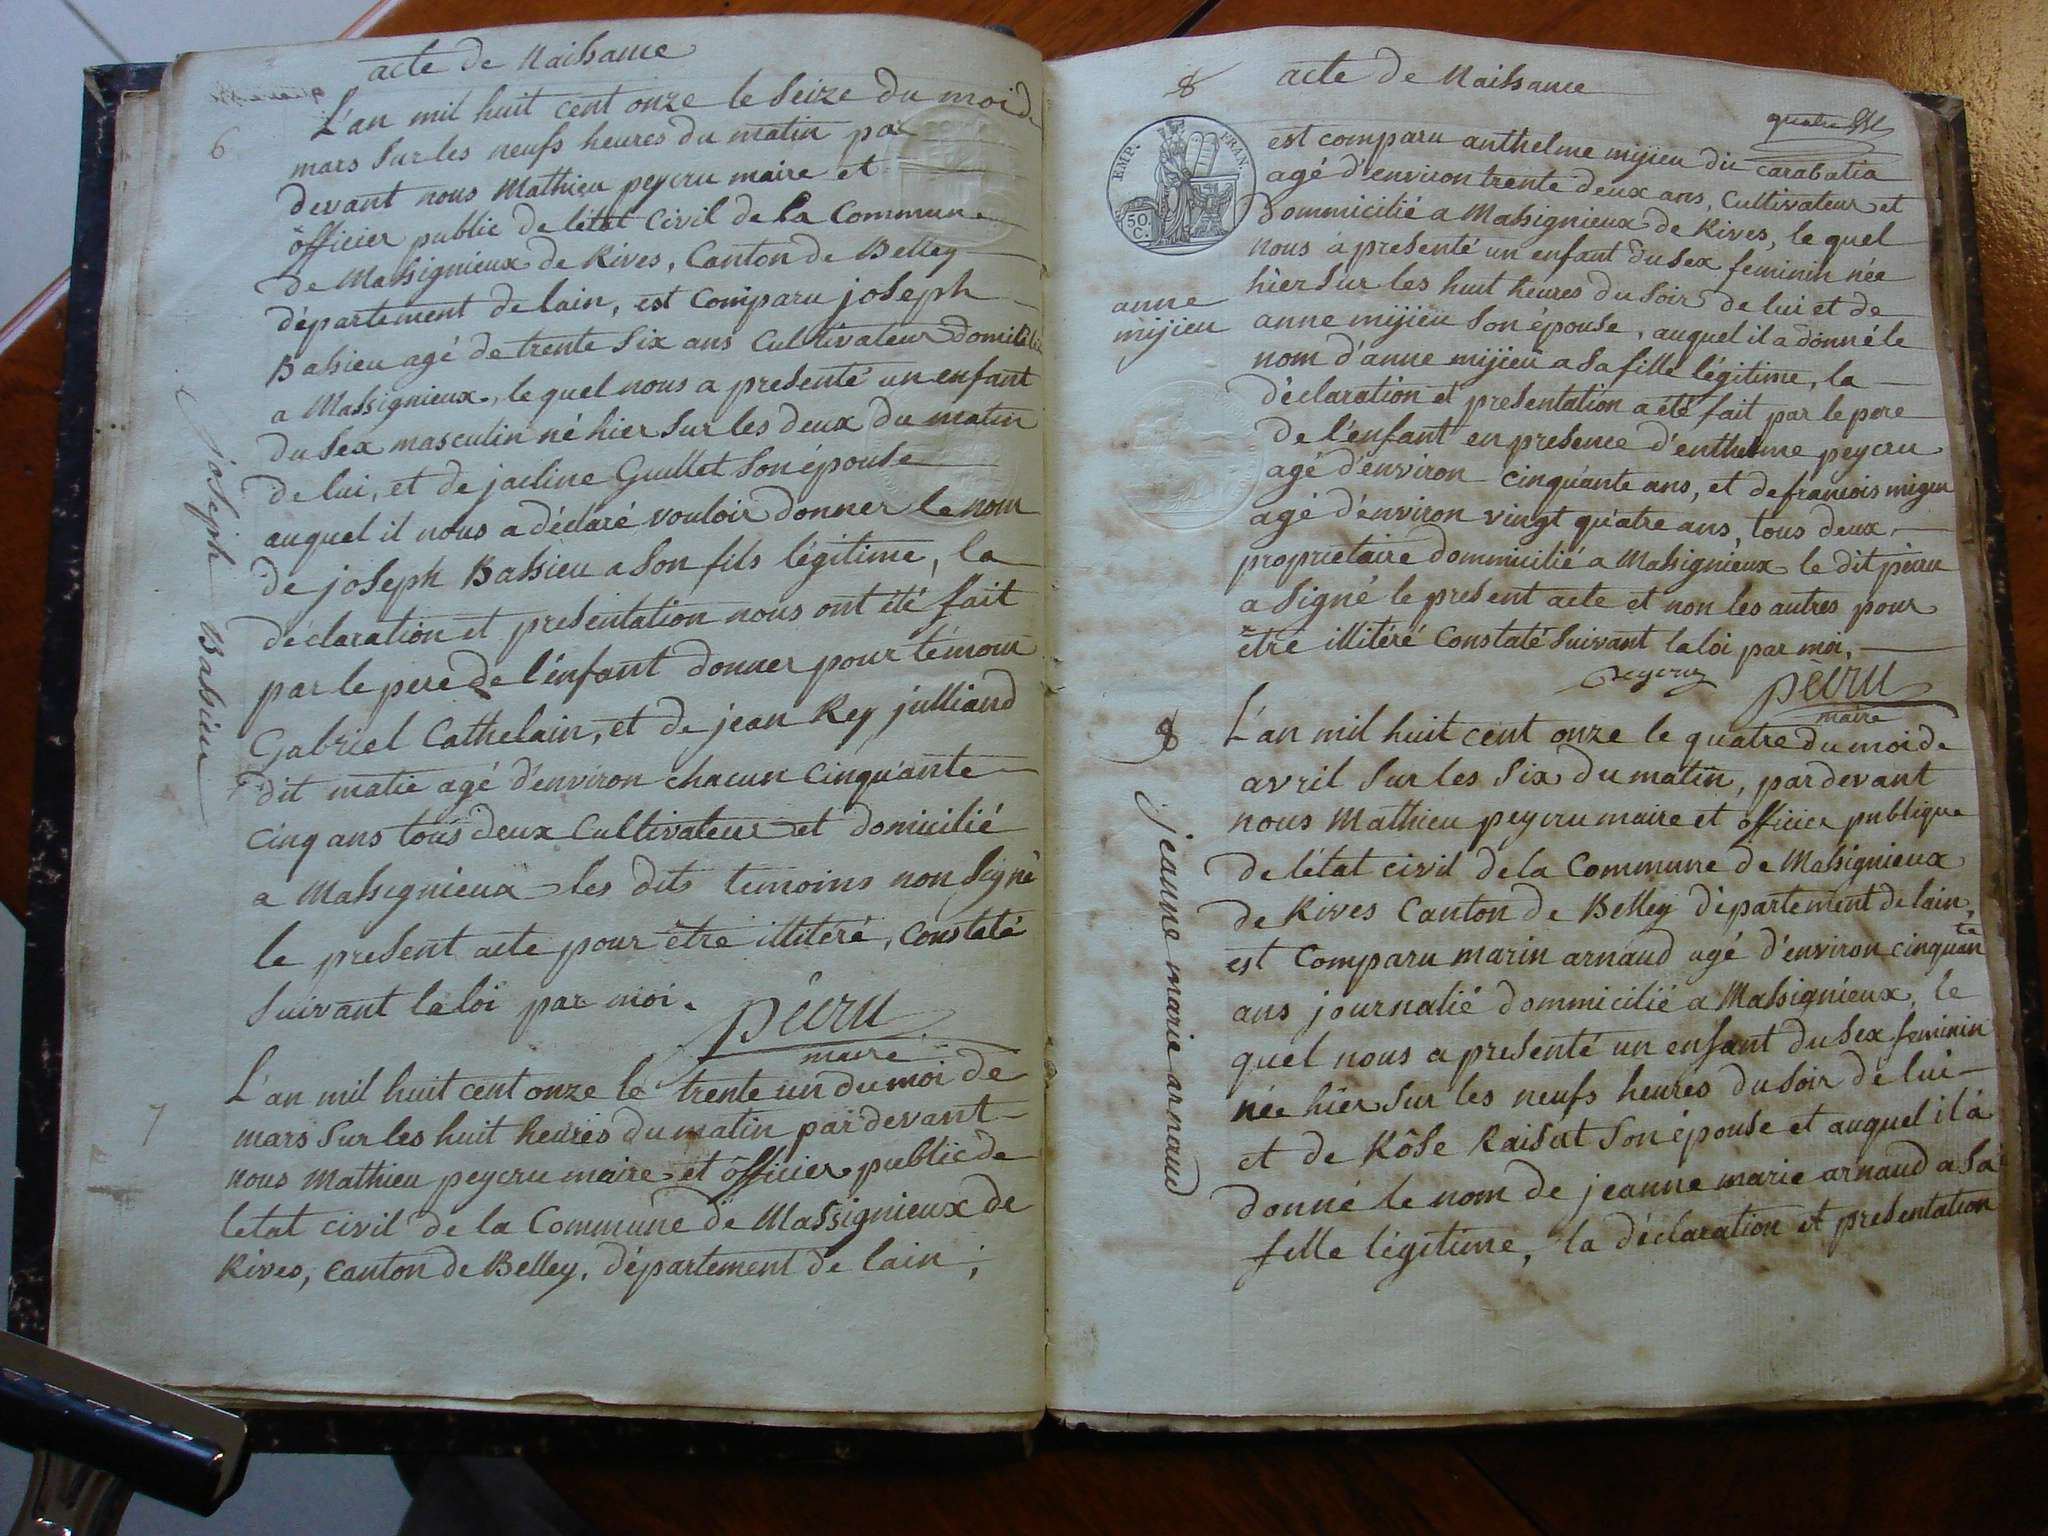 acte de Naissance
6
L'an mil huit cent onze le seize du moi de
mars sur les neufs heures du matin par
devant nous Mathieu peycru maire et
officier public de letat Civil de la Commune
de Massignieux de Rives, Canton de Belley
département de lain, est Comparu joseph
Bassieu agé de trente six ans Cultivateur domicilié
a Massignieux, le quel nous a presenté un enfant
du sex masculin né hier sur les deux du matin
de lui, et de jacline Guillet son épouse
auquel il nous a déclaré vouloir donner le nom
de joseph Bassieu a son fils légitime, la
déclaration et presentation nous ont été fait
par le pere de l'énfant donner pour témoin
Gabriel Cathelain, et de jean Rey julliand
dit matie agé d'environ chacun cinquante
cinq ans tous deux Cultivateur et domicilié
a Massignieux les dits temoins non signé
le present acte pour être illiteré, constaté
suivant la loi par moi.
pécru
maire
joseph Bassieu
7
L'an mil huit cent onze le trente un du moi de
mars sur les huit heures du matin par devant
nous Mathieu peycru maire et officier public de
letat civil de la Commune de Massignieux de
Rives, canton de Belley, département de lain;
8
acte de Naissance
quatre
EMP. FRAN.
50 C.
est comparu anthelme mijieu dit carabatia
agé d'environ trente deux ans, Cultivateur et
dommicilié a Massignieux de Rives, le quel
nous a presenté un enfant du sex feminin née
hier sur les huit heures du soir de lui et de
anne mijieu son épouse, auquel il a donné le
nom d'anne mijieu a sa fille légitime, la
déclaration et presentation a été fait par le pere
de l'enfant en presence d'enthelme peycru
agé d'environ cinquante ans, et de francois migeu
agé d'environ vingt quatre ans, tous deux
proprietaire dommicilié a Massignieux le dit pécru
a signé le present acte et non les autres pour
etre illitéré Constaté suivant la loi par moi.
peycru
pécru
maire
anne
mijieu
8
L'an mil huit cent onze le quatre du moi de
avril sur les six du matin, par devant
nous Mathieu peycru maire et officier publique
de létat civil de la Commune de Massignieux
de Rives Canton de Belley département de lain,
est Comparu marin arnaud agé d'environ cinquante
ans journalié dommicilié a Massignieux, le
quel nous a presenté un enfant du sex feminin
née hier sur les neufs heures du soir de lui
et de Rôse Raisat son épouse et auquel il a
donné le nom de jeanne marie arnaud a sa
fille légitime, la déclaration et presentation
jeanne marie arnaud